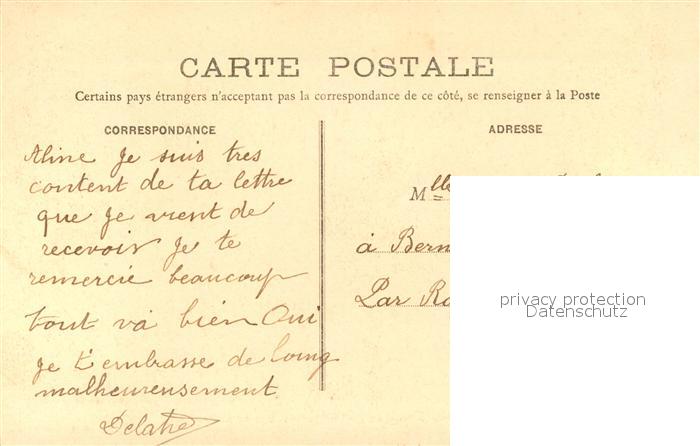 CARTE POSTALE
Certains pays étrangers n'acceptant pas la correspondance de ce côté, se renseigner à la Poste
CORRESPONDANCE
Aline Je suis tres
content de ta lettre
que Je vient de
recevoir Je te
remercie beaucoup
tout va bien Oui
Je t'embrasse de loing
malheureusement
Delatre
ADRESSE
Mlle
à Bern
Par Ro
privacy protection
Datenschutz